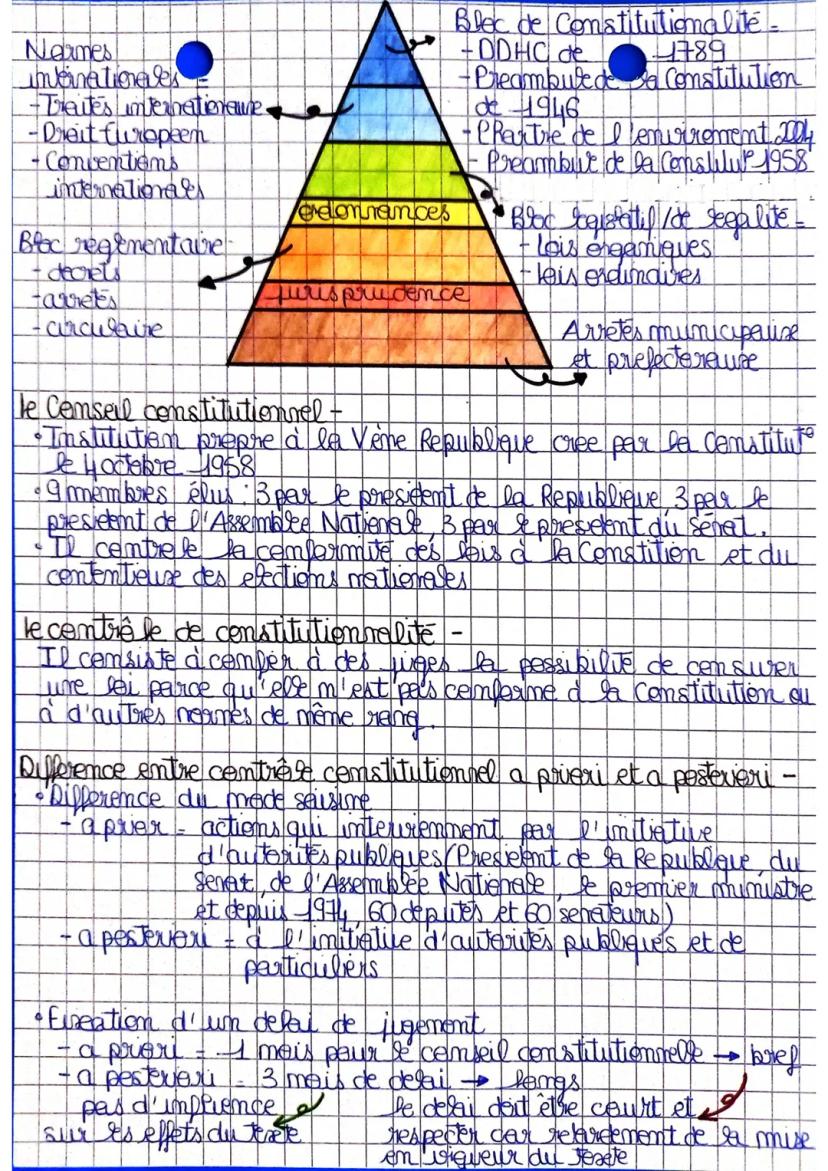 Bloc de Constitutionalité =
- DDHC de 1789
- Preambule de la Constitution
de 1946
- Chartre de l'envirement 2004
- Preambule de la Constitut° 1958
Normes
internationales =
- Traités internationaux
- Droit Européen
- Conventions
internationales
ordonnances
Bloc legislatif / de legalité =
- Lois organiques
- lois ordinaires
Bloc reglementaire -
- decrets
- arretés
- circulaire
jurisprudence
Arretés municipaux
et prefectoraux
le Conseil constitutionnel -
• Institution propre à la Vème Republique cree par la Constitut°
le 4 octobre 1958
• 9 membres élus : 3 par le president de la Republique, 3 par le
president de l'Assemblée Nationale, 3 par le president du Sénat.
• Il controle la conformité des lois à la Constition et du
contentieux des elections nationales
le contrôle de constitutionnalité -
Il consiste à confier à des juges la possibilité de censurer
une loi parce qu'elle n'est pas conforme à la Constitution ou
à d'autres normes de même rang.
Difference entre contrôle constitutionnel a priori et a posteriori -
• Difference du mode saisine
- a prior = actions qui interviennent par l'initiative
d'autorités publiques (President de la Republique, du
Senat, de l'Assemblée Nationale, le premier ministre
et depuis 1974, 60 deputés et 60 senateurs)
- a posteriori = à l'initiative d'autorités publiques et de
particuliers
• Fixation d'un delai de jugement
- a priori = 1 mois pour le conseil constitutionnelle → bref
- a posteriori = 3 mois de delai → longs
pas d'influence
sur les effets du texte
le delai doit être court et
respecter car retardement de la mise
en vigueur du texte